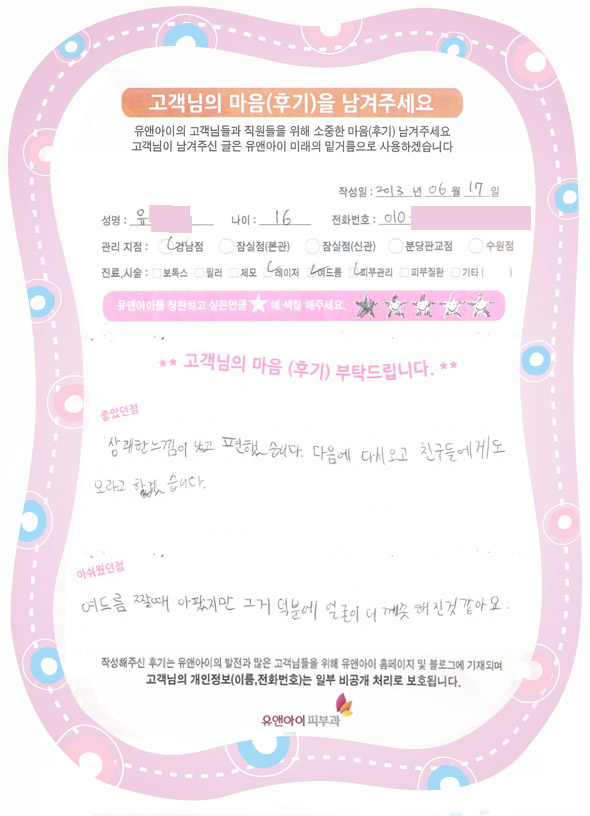 고객님의 마음(후기)을 남겨주세요
유앤아이의 고객님들과 직원들을 위해 소중한 마음(후기) 남겨주세요
고객님이 남겨주신 글은 유앤아이 미래의 밑거름으로 사용하겠습니다
작성일 : 2013 년 06 월 17 일
성명 : 유 나이 : 16 전화번호 : 010-
관리 지점 : 강남점 잠실점(본관) 잠실점(신관) 분당판교점 수원점
진료,시술 : 보톡스 필러 제모 레이저 여드름 피부관리 피부질환 기타 ( )
유앤아이를 칭찬하고 싶은만큼 ★ 에 색칠 해주세요.
** 고객님의 마음 (후기) 부탁드립니다. **
좋았던점
상쾌한느낌이 났고 편했습니다. 다음에 다시오고 친구들에게도
오라고 하겠습니다.
아쉬웠던점
여드름 짤때 아팠지만 그거 덕분에 얼굴이 더 깨끗해진것같아요.
작성해주신 후기는 유앤아이의 발전과 많은 고객님들을 위해 유앤아이 홈페이지 및 블로그에 기재되며
고객님의 개인정보(이름,전화번호)는 일부 비공개 처리로 보호됩니다.
유앤아이피부과